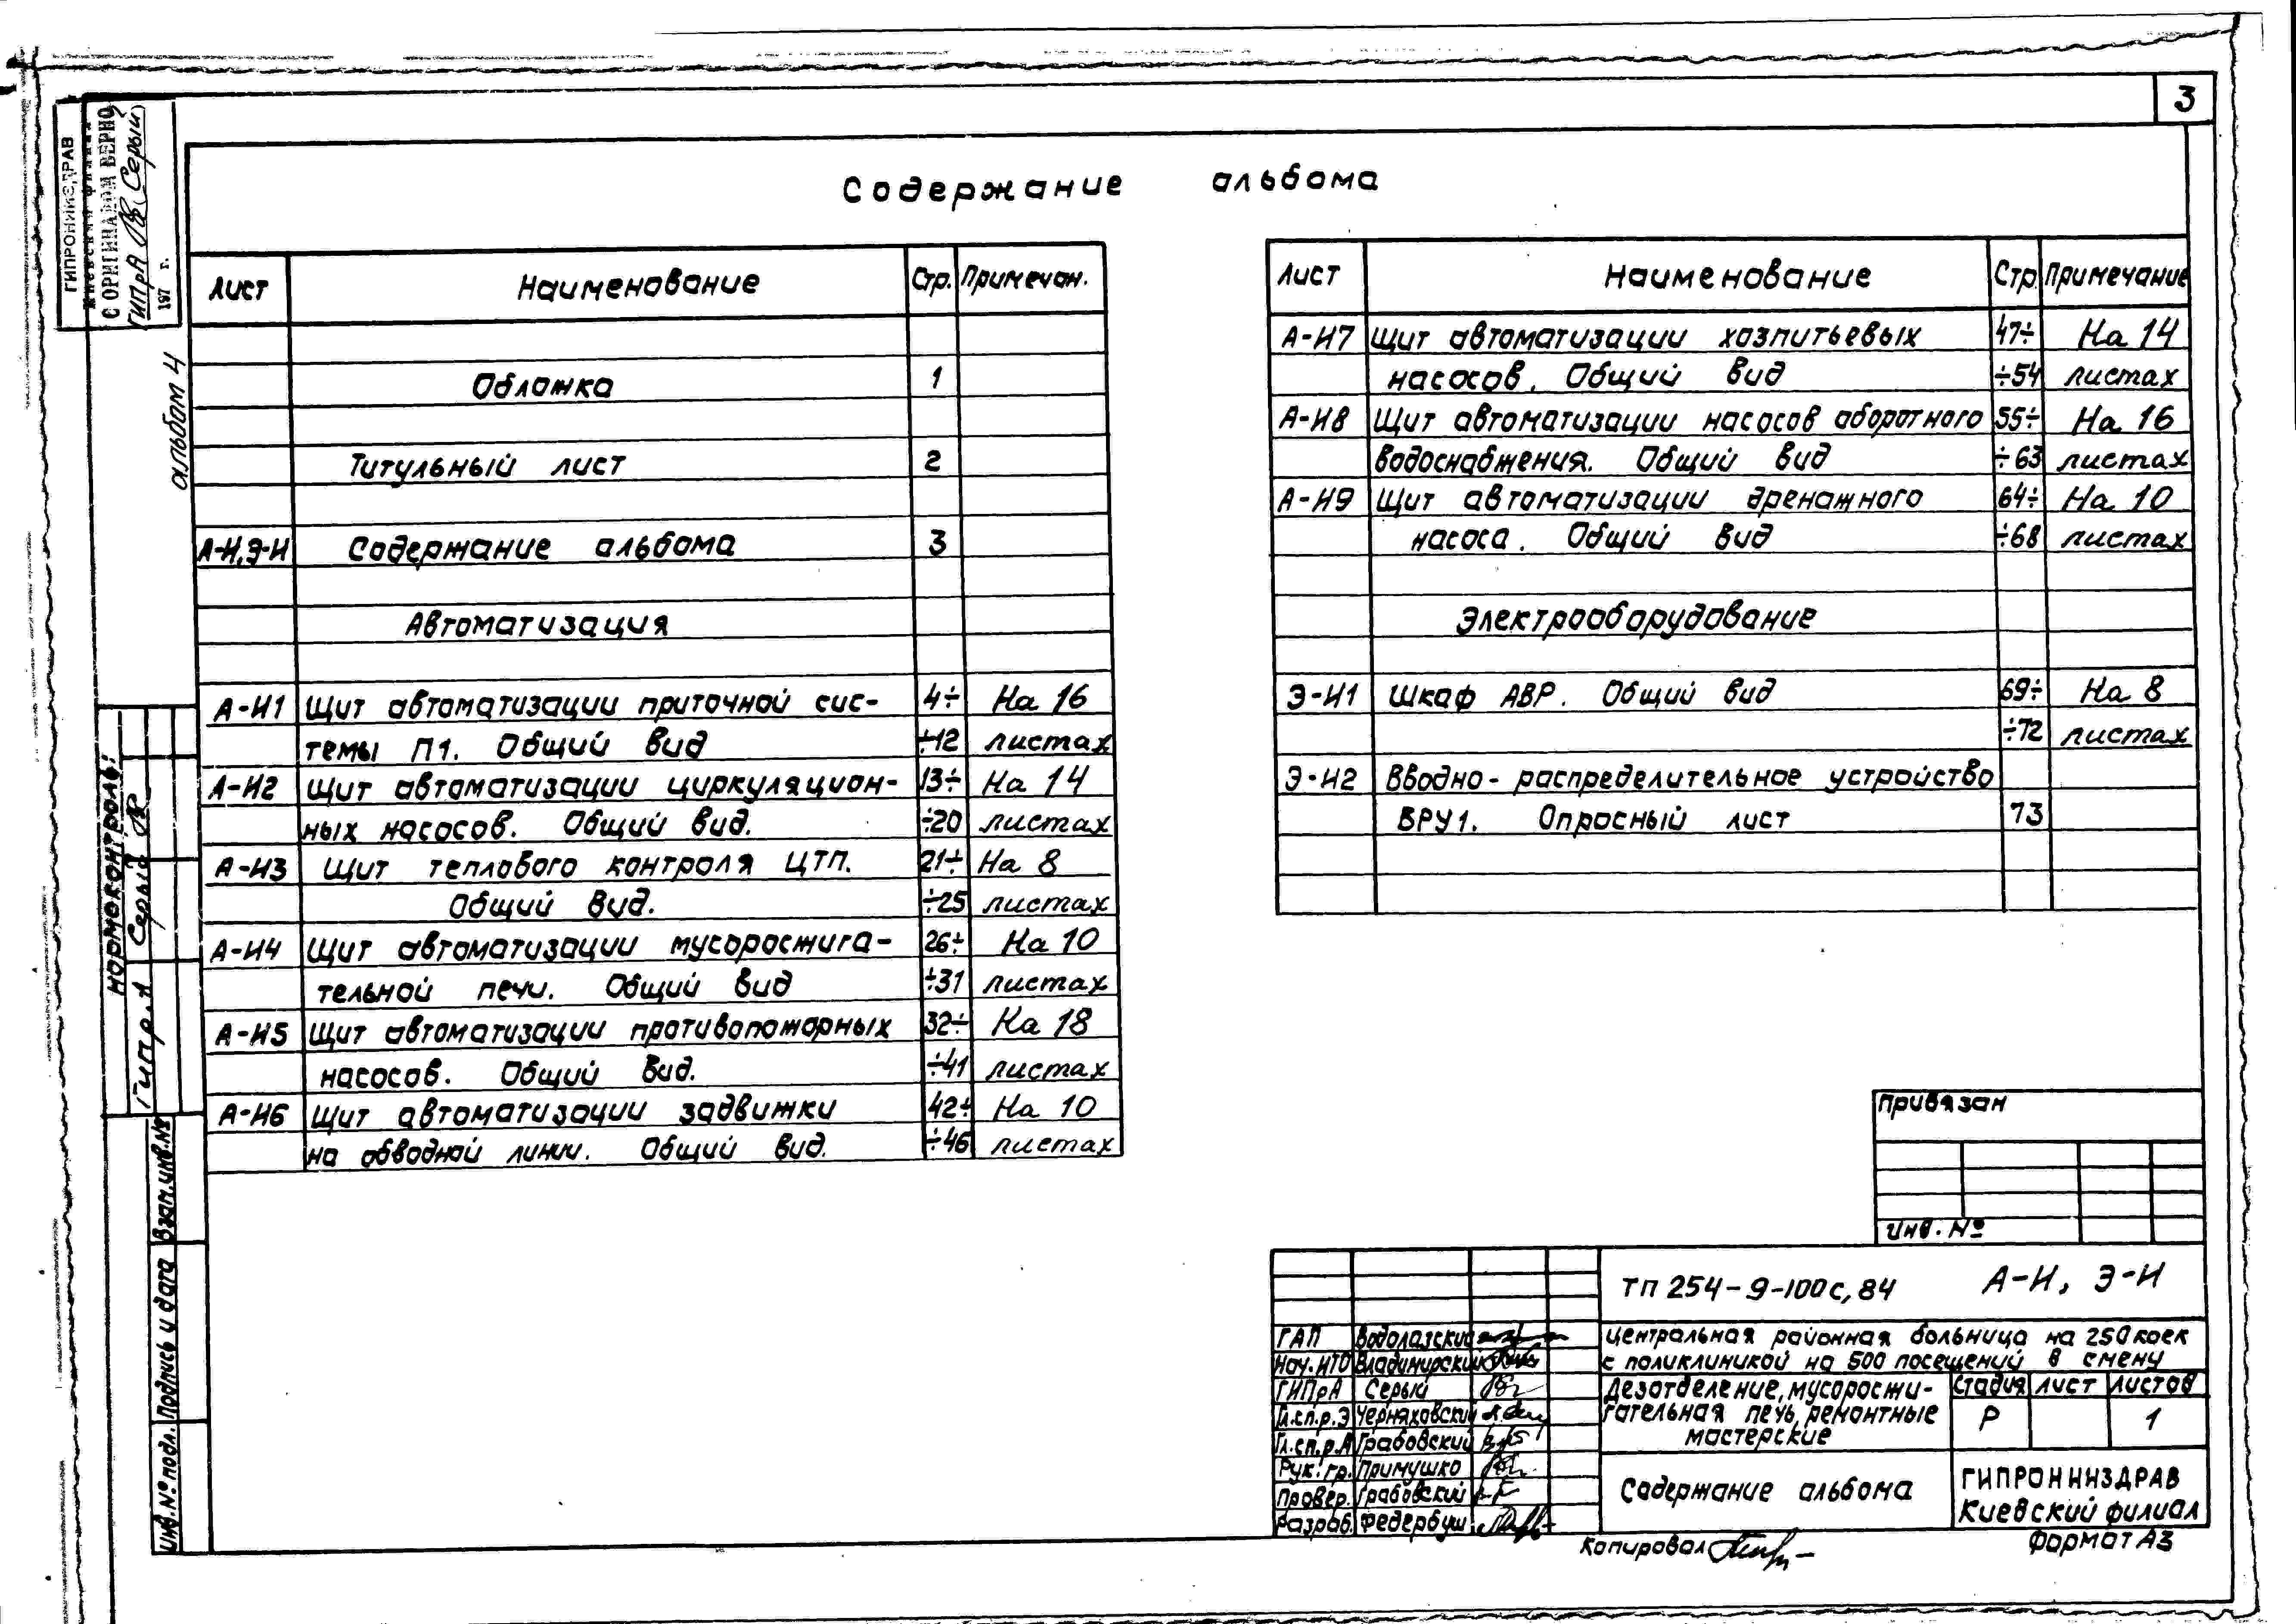 3
ГИПРОНИИЗДРАВ
Киевский филиал
С ОРИГИНАЛОМ ВЕРНО
ГИПрА (Серый)
197 г.
альбом 4
Содержание альбома
Лист Наименование Стр. Примечан.
Обложка 1
Титульный лист 2
А-И,Э-И Содержание альбома 3
Автоматизация
А-И1 Щит автоматизации приточной сис- 4÷ На 16
темы П1. Общий вид ÷12 листах
А-И2 Щит автоматизации циркуляцион- 13÷ На 14
ных насосов. Общий вид. ÷20 листах
А-И3 Щит теплового контроля ЦТП. 21÷ На 8
Общий вид. ÷25 листах
А-И4 Щит автоматизации мусоросжига- 26÷ На 10
тельной печи. Общий вид ÷31 листах
А-И5 Щит автоматизации противопожарных 32÷ На 18
насосов. Общий вид. ÷41 листах
А-И6 Щит автоматизации задвижки 42÷ На 10
на обводной линии. Общий вид. ÷46 листах
Лист Наименование Стр. Примечание
А-И7 Щит автоматизации хозпитьевых 47÷ На 14
насосов. Общий вид ÷54 листах
А-И8 Щит автоматизации насосов оборотного 55÷ На 16
водоснабжения. Общий вид ÷63 листах
А-И9 Щит автоматизации дренажного 64÷ На 10
насоса. Общий вид ÷68 листах
Электрооборудование
Э-И1 Шкаф АВР. Общий вид 69÷ На 8
÷72 листах
Э-И2 Вводно-распределительное устройство
ВРУ1. Опросный лист 73
Нормоконтроль:
Гип р.А Серый
Взам.инв.№
Подпись и дата
Инв.№ подл.
Привязан
Инв. №
ТП 254-9-100с,84 А-И, Э-И
ГАП Водолазский
Нач.ИТО Владимирский
ГИПрА Серый
Гл.сп.р.Э Черняховский
Гл.сп.р.А Грабовский
Рук.гр. Примушко
Провер. Грабовский
Разраб. Федербуш
Центральная районная больница на 250 коек
с поликлиникой на 500 посещений в смену
Дезотделение, мусоросжи-
гательная печь, ремонтные
мастерские
Стадия Лист Листов
Р 1
Содержание альбома
ГИПРОНИИЗДРАВ
Киевский филиал
Копировал
Формат А3